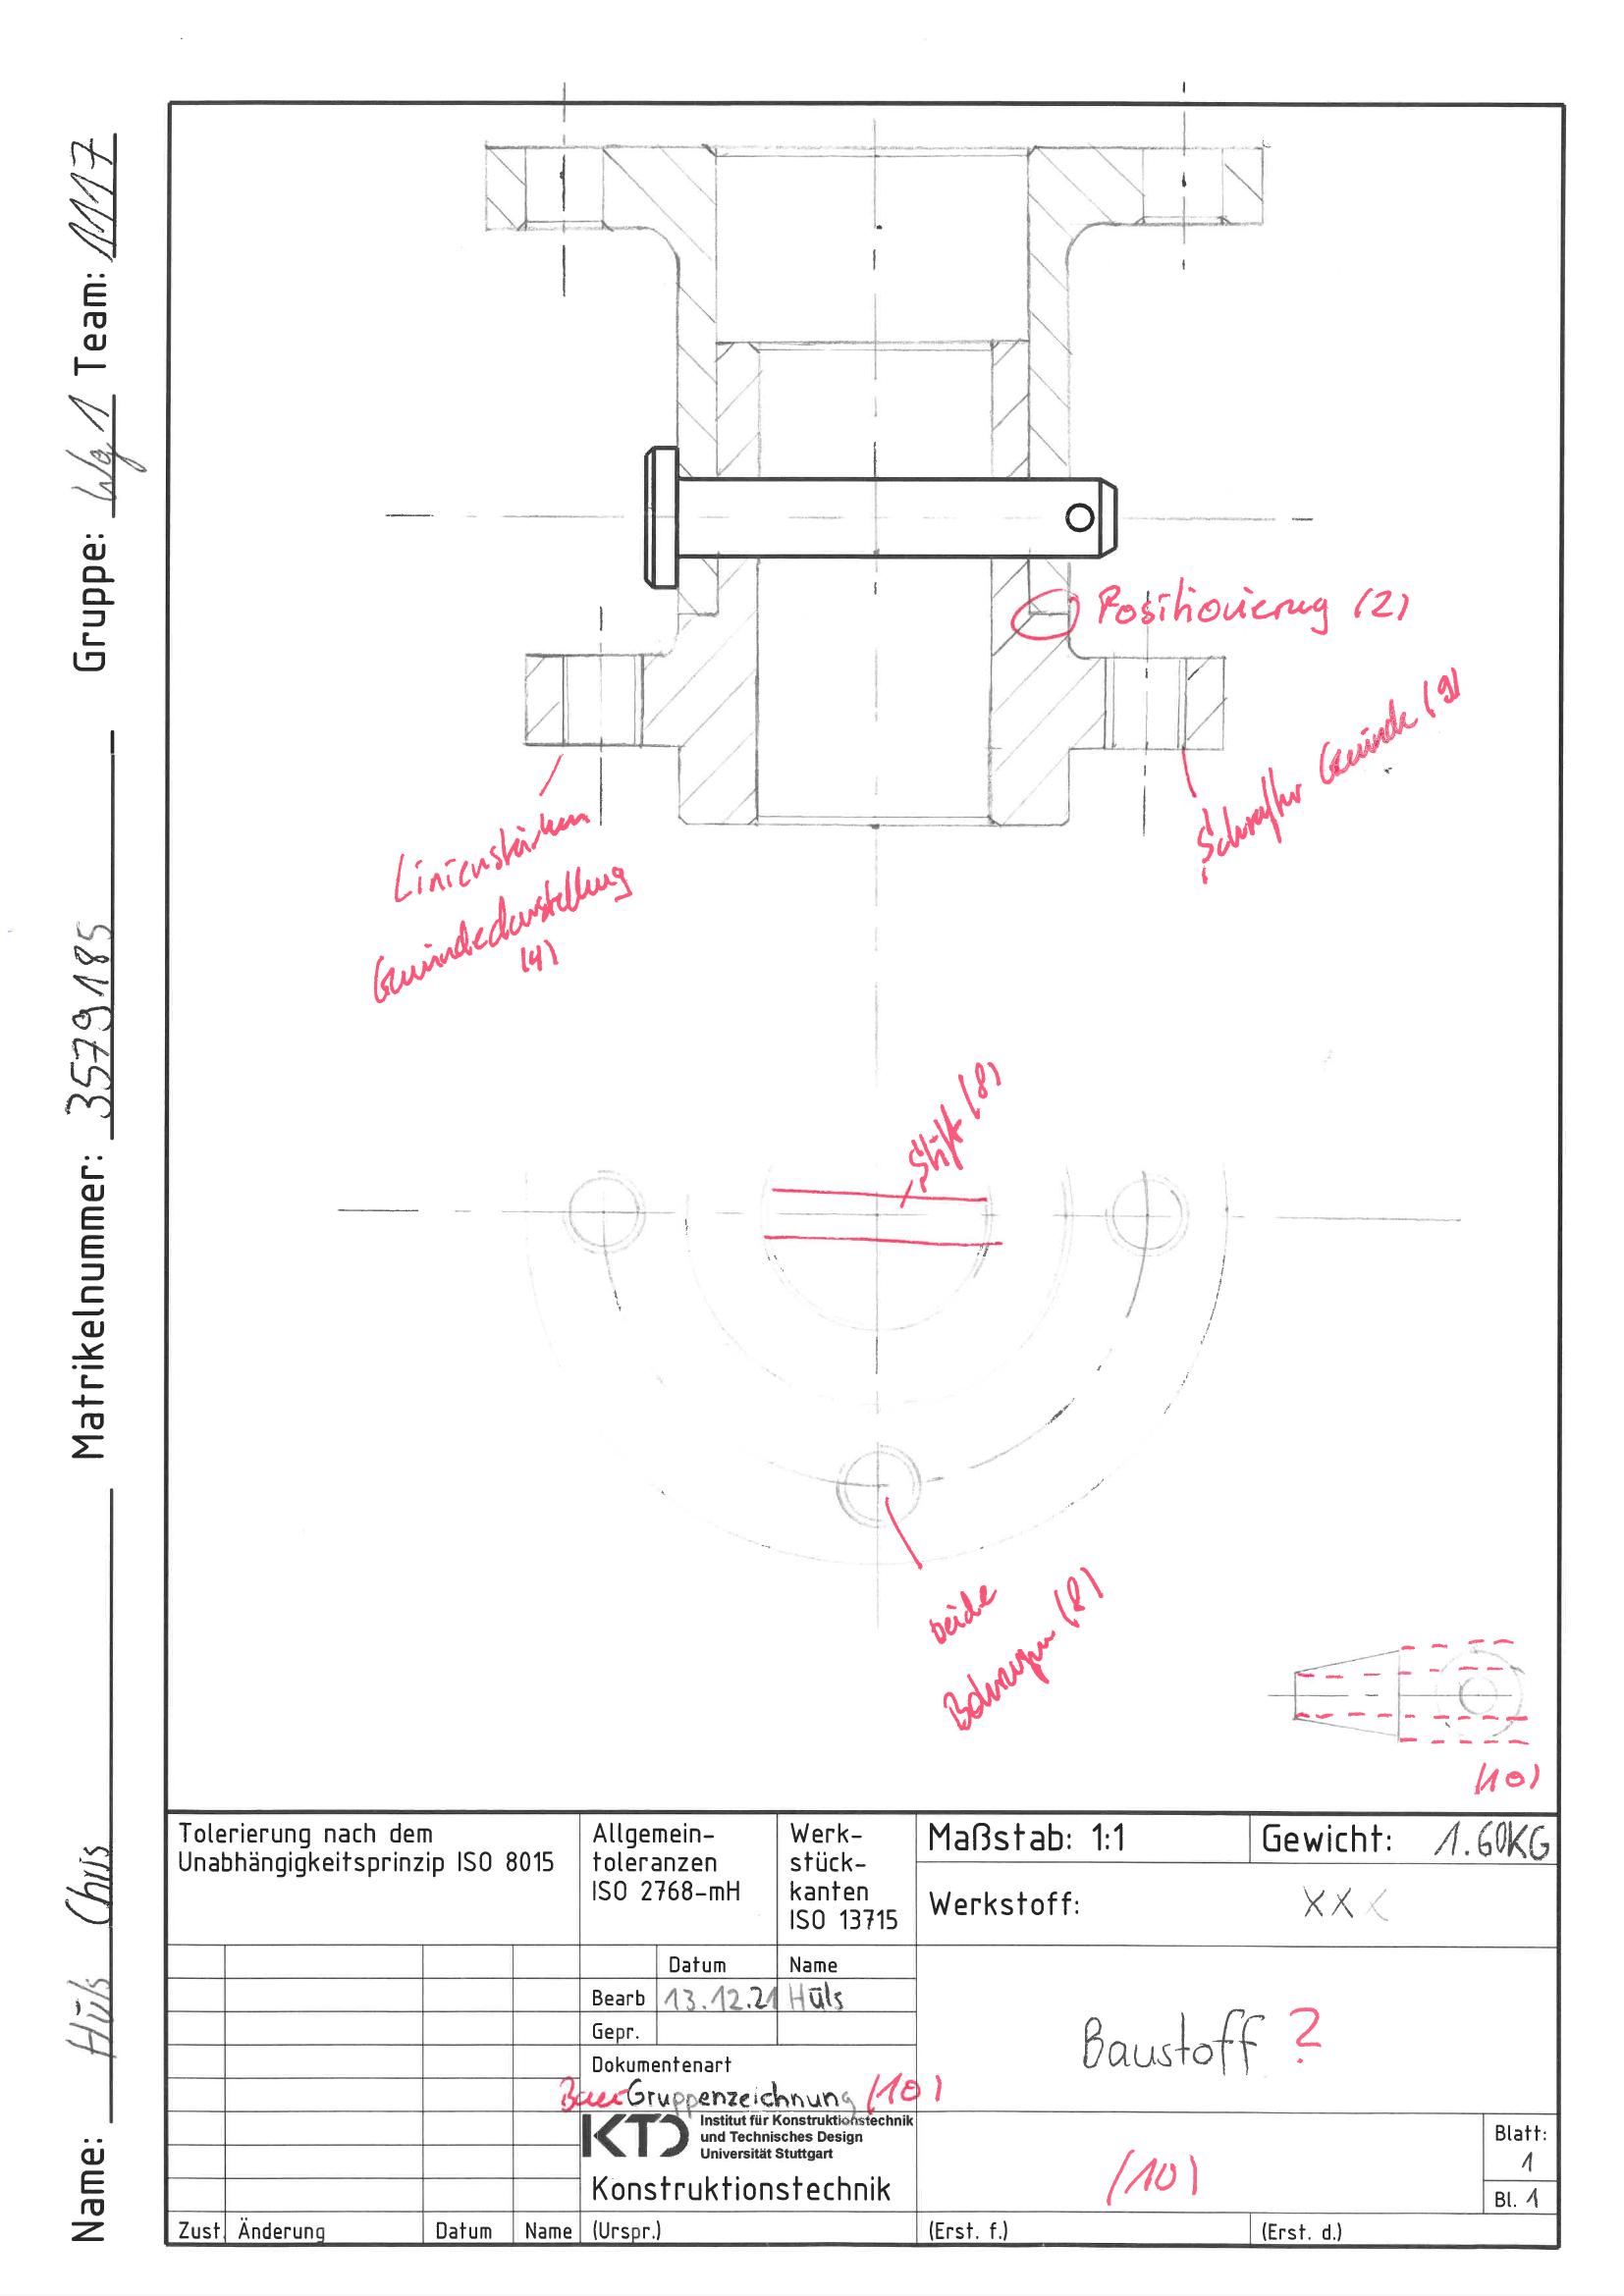 Name: Hüls Chris Matrikelnummer: 3579185 Gruppe: Wg1 Team: 1117
Positionierung (2)
Schraffur Gewinde (9)
Linienstärken
Gewindedarstellung
(4)
Stift (8)
beide
Bohrungen (8)
(10)
Tolerierung nach dem
Unabhängigkeitsprinzip ISO 8015
Allgemein-
toleranzen
ISO 2768-mH
Werk-
stück-
kanten
ISO 13715
Maßstab: 1:1
Gewicht: 1.60KG
Werkstoff: XXX
Datum Name
Bearb 13.12.21 Hüls
Gepr.
Dokumentenart
Bau Gruppenzeichnung (10)
Baustoff ?
KTD Institut für Konstruktionstechnik
und Technisches Design
Universität Stuttgart
Konstruktionstechnik
(10)
Blatt:
1
Bl. 1
Zust. Änderung Datum Name (Urspr.) (Erst. f.) (Erst. d.)